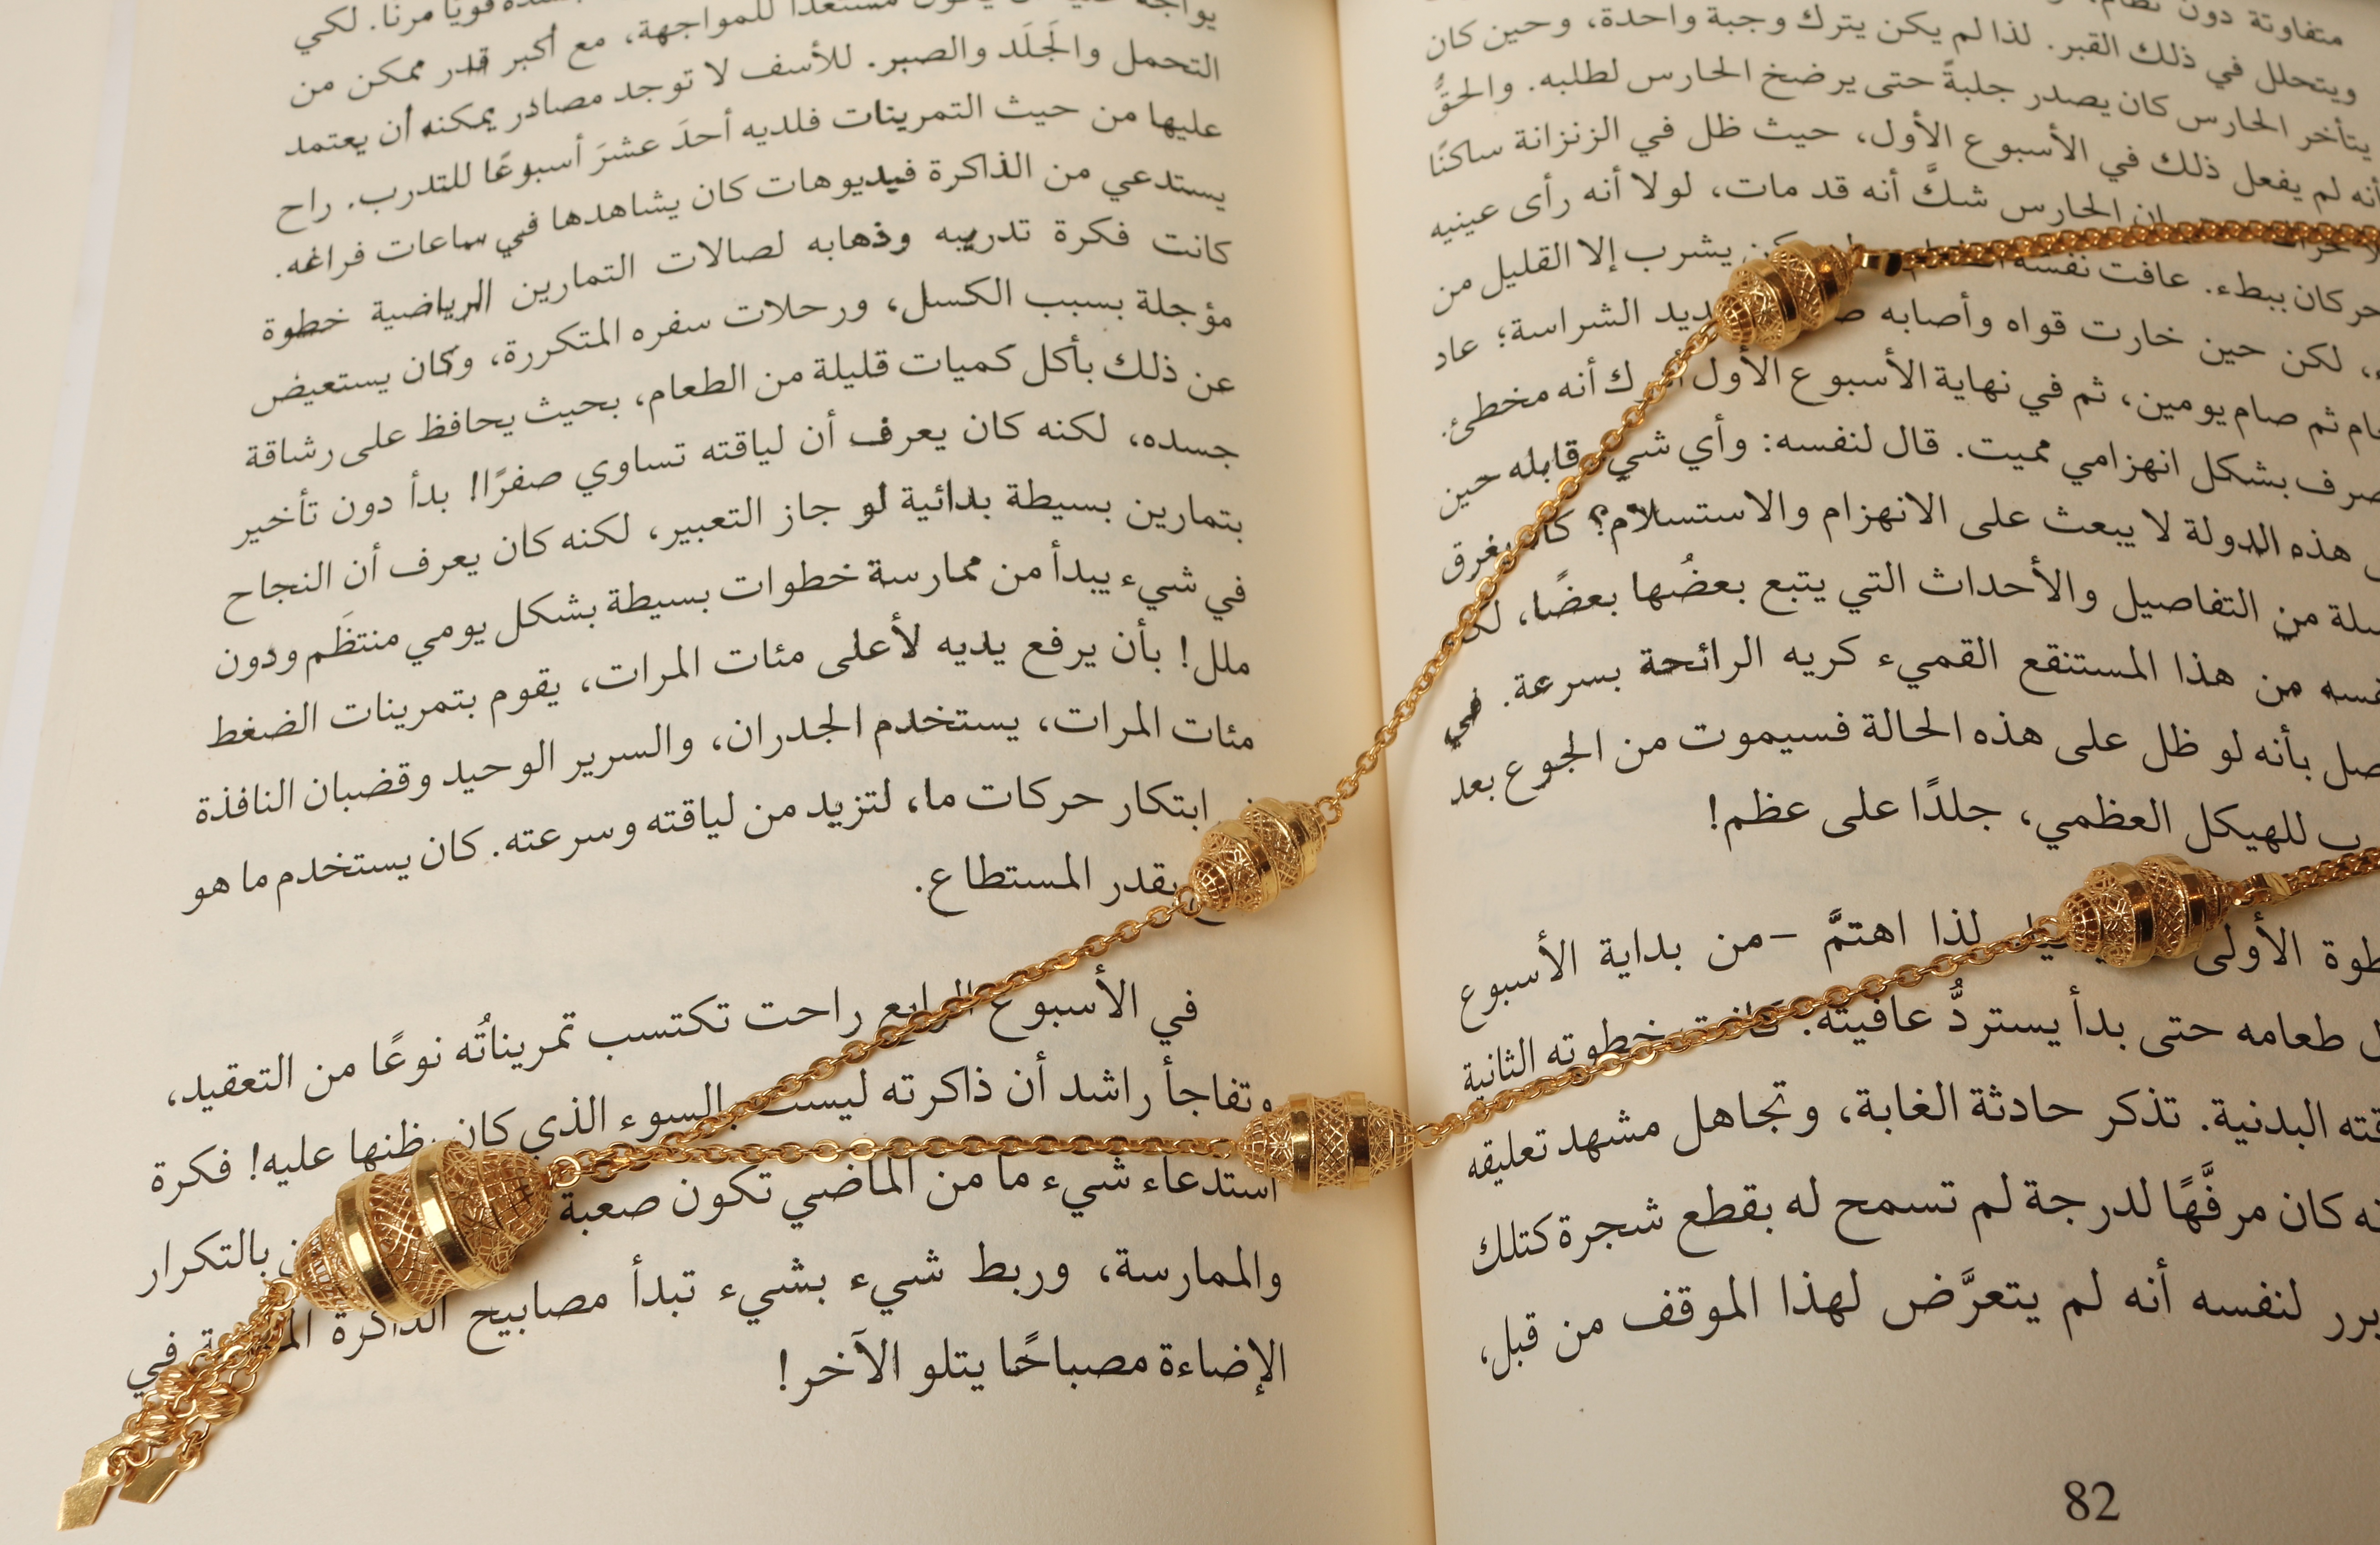 متفاوتة دون
ويتحلل في ذلك القبر. لذا لم يكن يترك وجبة واحدة، وحين كان
يتأخر الحارس كان يصدر جلبةً حتى يرضخ الحارس لطلبه. والحقُّ
أنه لم يفعل ذلك في الأسبوع الأول، حيث ظل في الزنزانة ساكنًا
الحارس شكَّ أنه قد مات، لولا أنه رأى عينيه
ببطء. عافت نفسه يشرب إلا القليل من
لكن حين خارت قواه وأصابه الشراسة؛ عاد
ثم صام يومين، ثم في نهاية الأسبوع الأول أنه مخطئ.
بشكل انهزامي مميت. قال لنفسه: وأي قابله حين
هذه الدولة لا يبعث على الانهزام والاستسلام؟ يغرق
من التفاصيل والأحداث التي يتبع بعضُها بعضًا،
من هذا المستنقع القميء كريه الرائحة بسرعة. في
بأنه لو ظل على هذه الحالة فسيموت من الجوع بعد
للهيكل العظمي، جلدًا على عظم!
الأولى لذا اهتمَّ –من بداية الأسبوع
طعامه حتى بدأ يستردُّ عافيته. كانت خطوته الثانية
البدنية. تذكر حادثة الغابة، وتجاهل مشهد تعليقه
كان مرفَّهًا لدرجة لم تسمح له بقطع شجرة كتلك
لنفسه أنه لم يتعرَّض لهذا الموقف من قبل،
82
للمواجهة، مع أكبر قدر ممكن من
التحمل والجَلَد والصبر. للأسف لا توجد مصادر يمكنه أن يعتمد
عليها من حيث التمرينات فلديه أحدَ عشرَ أسبوعًا للتدرب. راح
يستدعي من الذاكرة فيديوهات كان يشاهدها في ساعات فراغه.
كانت فكرة تدريبه وذهابه لصالات التمارين الرياضية خطوة
مؤجلة بسبب الكسل، ورحلات سفره المتكررة، وكان يستعيض
عن ذلك بأكل كميات قليلة من الطعام، بحيث يحافظ على رشاقة
جسده، لكنه كان يعرف أن لياقته تساوي صفرًا! بدأ دون تأخير
بتمارين بسيطة بدائية لو جاز التعبير، لكنه كان يعرف أن النجاح
في شيء يبدأ من ممارسة خطوات بسيطة بشكل يومي منتظَم ودون
ملل! بأن يرفع يديه لأعلى مئات المرات، يقوم بتمرينات الضغط
مئات المرات، يستخدم الجدران، والسرير الوحيد وقضبان النافذة
ابتكار حركات ما، لتزيد من لياقته وسرعته. كان يستخدم ما هو
بقدر المستطاع.
في الأسبوع الرابع راحت تكتسب تمريناتُه نوعًا من التعقيد،
وتفاجأ راشد أن ذاكرته ليست بالسوء الذي كان يظنها عليه! فكرة
استدعاء شيء ما من الماضي تكون صعبة بالتكرار
والممارسة، وربط شيء بشيء تبدأ مصابيح الذاكرة في
الإضاءة مصباحًا يتلو الآخر!